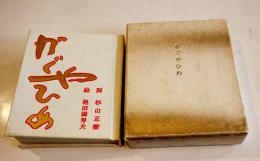 かぐやひめ
詞 杉山正樹
絵 池田満寿夫
かぐやひめ